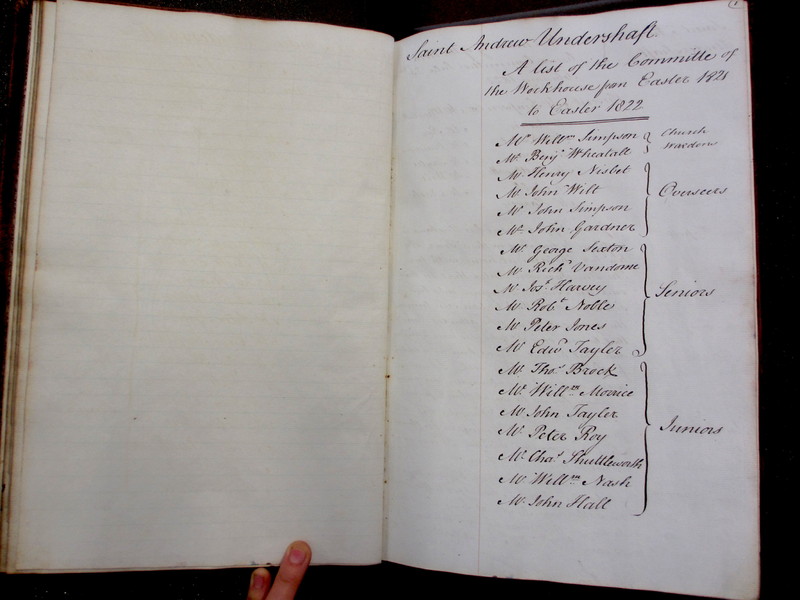 1
Saint Andrew Undershaft
A list of the Committe of
the Workhouse from Easter 1821
to Easter 1822
Mr Willm Simpson
Mr Benjn Wheatall
Church
Wardens
Mr Henry Nisbet
Mr John Wilt
Mr John Simpson
Mr John Gardner
Overseers
Mr George Sexton
Mr Richd Vandome
Mr Jost Harvey
Mr Robt Noble
Mr Peter Jones
Mr Edwd Tayler
Seniors
Mr Thos Brock
Mr Willm Moorice
Mr John Tayler
Mr Peter Roy
Mr Chas Shuttleworth
Mr Willm Nash
Mr John Hall
Juniors